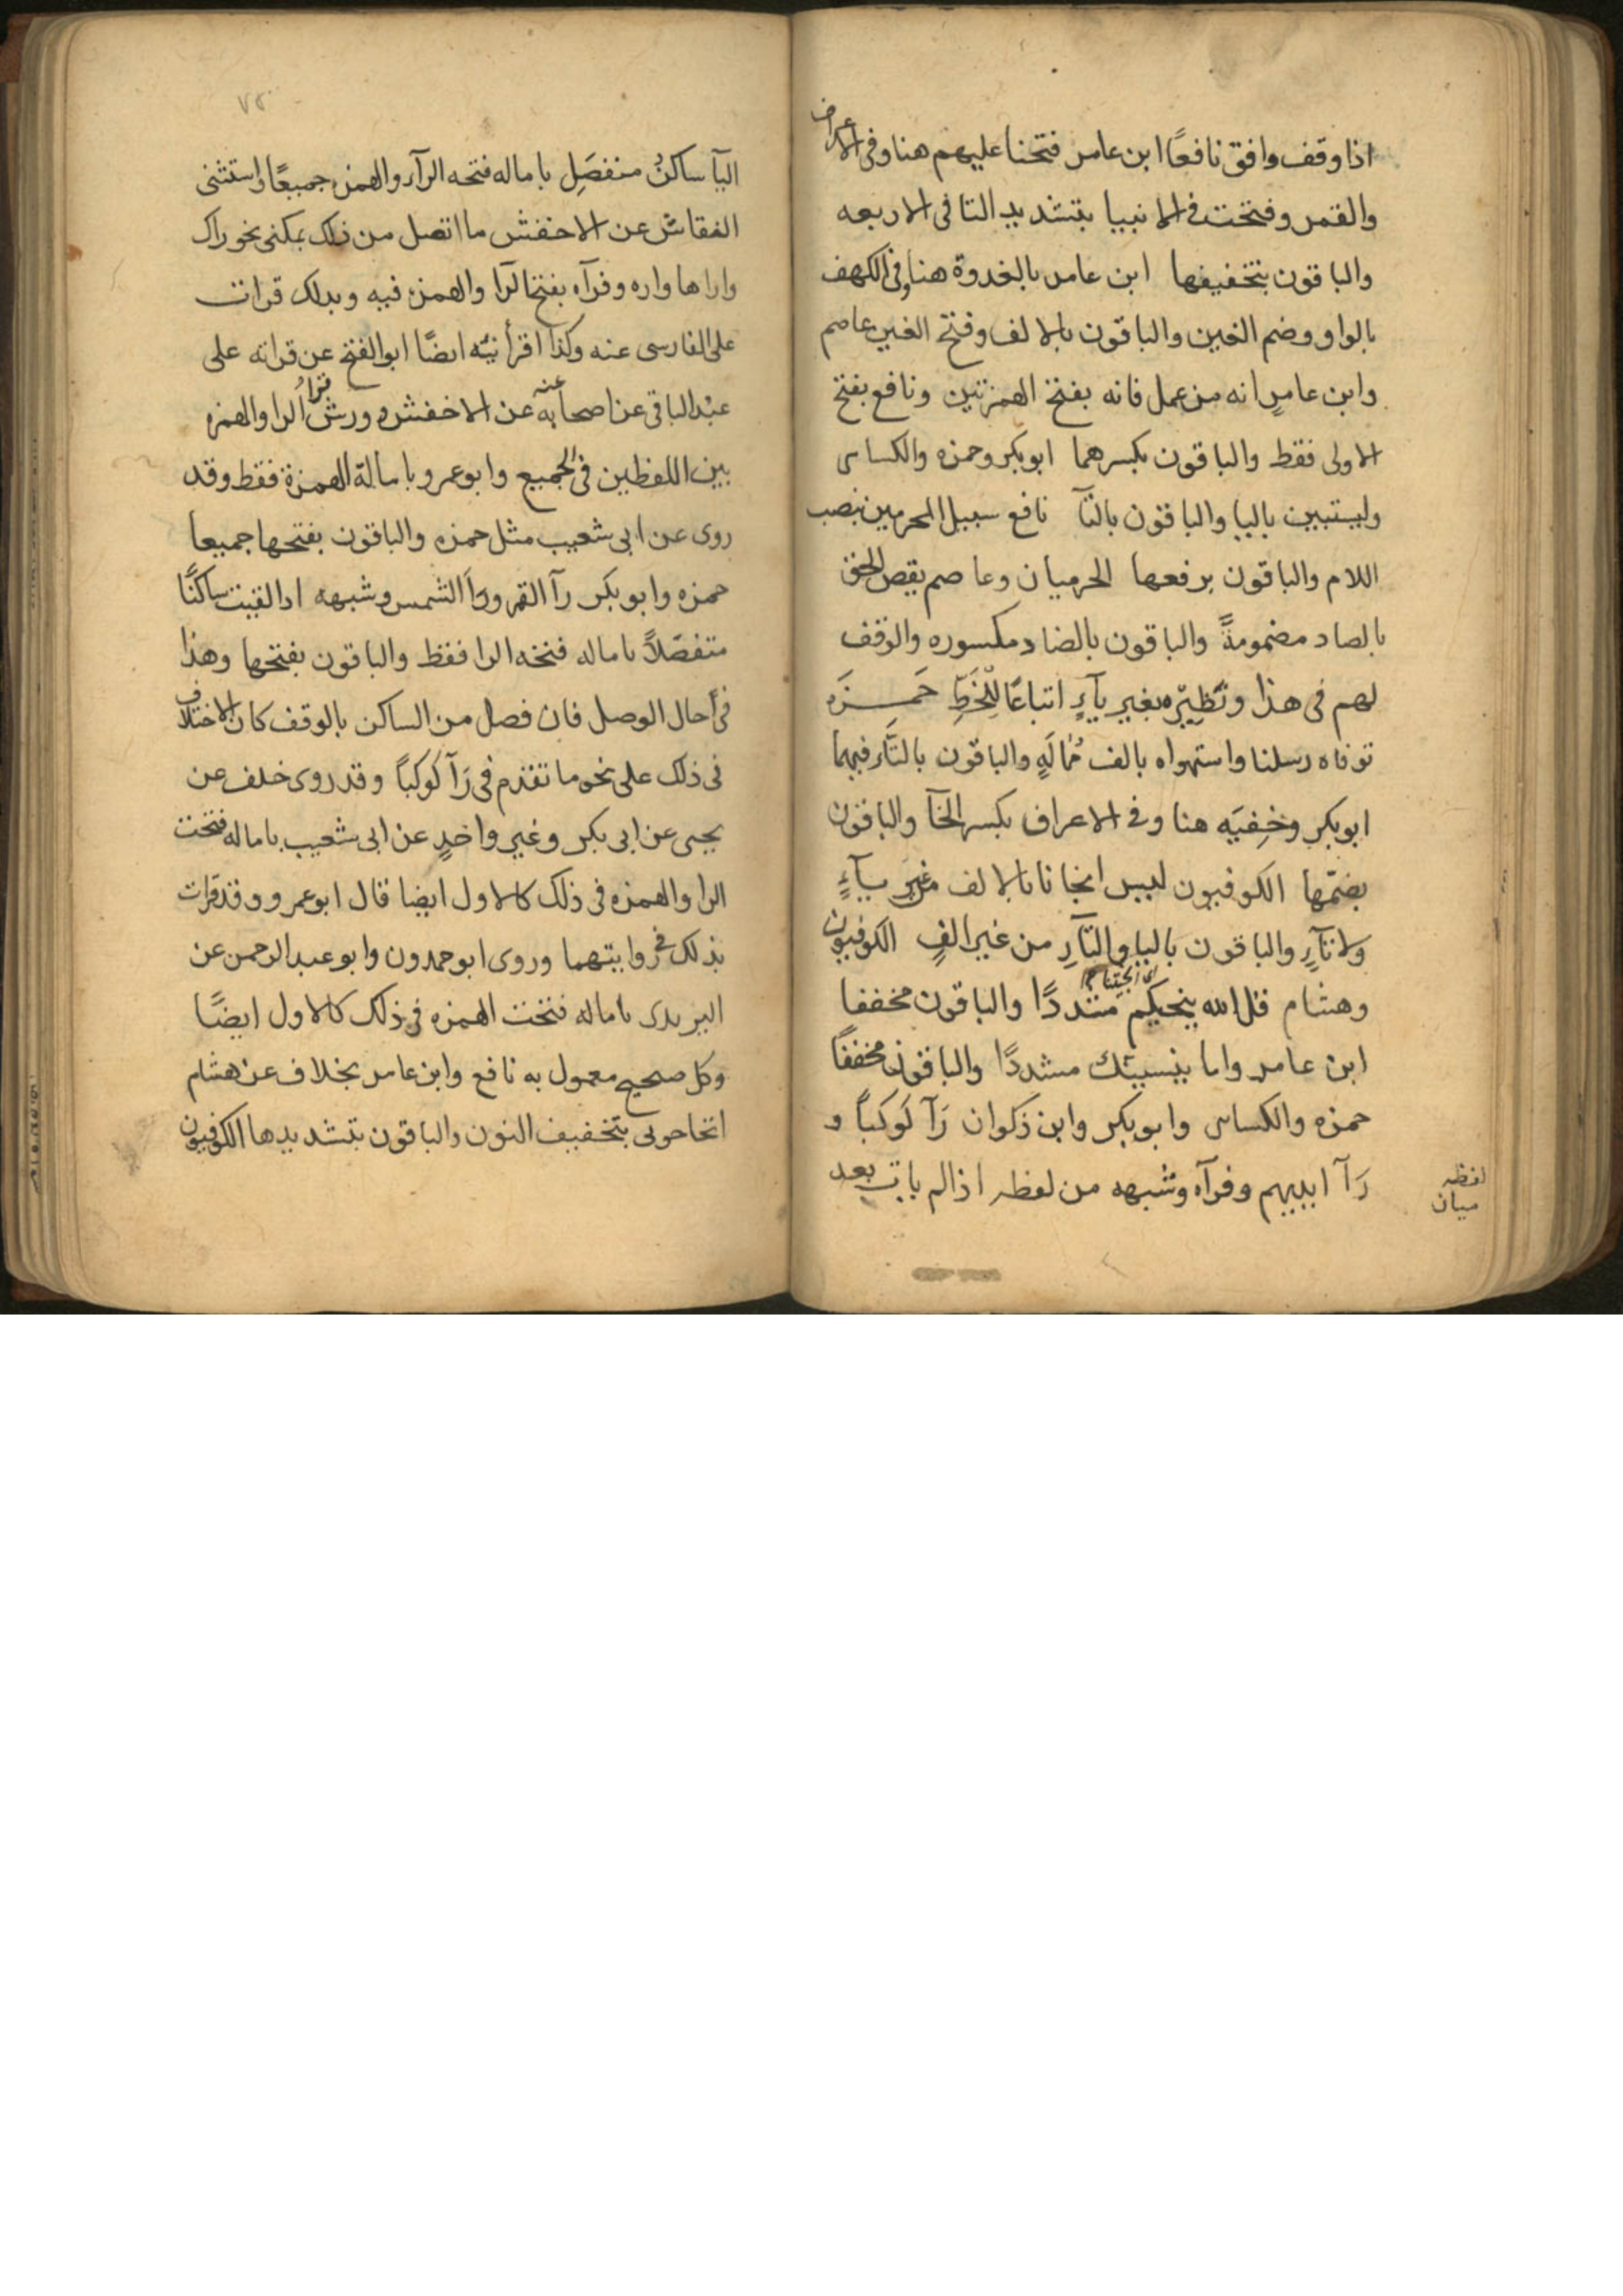 اذا وقف وافق نافعًا ابن عامر فتحنا عليهم هنا وفى الاعراف
والقمر وفتحت فى الانبيا بتشديد التا فى الاربعه
والباقون بتخفيفها ابن عامر بالغدوة هنا وفى الكهف
بالواو وضم الغين والباقون بالالف وفتح الغين عاصم
وابن عامرٍ انه من عمل فانه بفتح الهمزتين ونافع بفتح
الاولى فقط والباقون بكسرهما ابوبكر وحمزه والكساى
وليستبين باليا والباقون بالتآ نافع سبيل المجرمين بنصب
اللام والباقون برفعها الحرميان وعاصم يقص الحق
بالصاد مضمومةً والباقون بالضاد مكسوره والوقف
لهم فى هذا ونَظِيْرِه بغير يآءٍ اتباعًا لِلْخَطِّ حَمـزَه
توفاه رسلنا واستهواه بالف مُمَالَةٍ والباقون بالتَّاء فيهما
ابوبكر وخِفيَه هنا وفى الاعراف بكسر الخآ والباقون
بضمّها الكوفيون لىىں انجانا بالالف من غير يآءٍ
ولا تآءٍ والباقون باليا والتآءِ من غير الفٍ الكوفيون
وهشام قل الله ينجيكم مشددًا والباقون مخففا
ابن عامر واما ينسينك مشددًا والباقون مخففًا
حمزه والكساى وابوبكر وابن ذكوان رَآ كَوكَبًا و
رَآ ايديهم وفرآه وشبهه من لفظه اذا لم يات بعد
لفظه
ميان
اليآ ساكنٌ منفصَلٍ باماله فتحه الرآء والهمزه جميعًا واستثنى
النقاش عن الاخفش ما اتصل من ذلك بمكنى نحو راك
وراها وراه وفرآه بفتح الرا والهمزه فيه وبذلك قرات
على الفارسى عنه وكذا اقرأنيّه ايضًا ابوالفتح عن قراته على
عبْد الباقى عن اصحابه عنه عن الاخفش وورش بقرأ الرا والهمزه
بين اللفظين فى الجميع وابوعمرو بامالة الهمزة فقط وقد
روى عن ابى شعيب مثل حمزه والباقون بفتحها جميعا
حمزه وابوبكر رآ القمر ورَأ الشمس وشبهه اذا لقيت ساكنًا
منفصَلاً باماله فتحه الرا فقط والباقون بفتحها وهذا
فى حال الوصل فان فصل من الساكن بالوقف كان الاختلاف
فى ذلك على نحو ما تقدم فى رَآ كَوكبًا وقد روى خلف عن
يحيى عن ابى بكر وغير واحدٍ عن ابى شعيب باماله فتحت
الرا والهمزه فى ذلك كالاول ايضا قال ابوعمرو وقد قرات
بذلك فى روايتهما وروى ابوحمدون وابوعبد الرحمن عن
اليزيدى باماله فتحت الهمزه فى ذلك كالاول ايضًا
وكل صحيح معمول به نافع وابن عامر بخلاف عن هشام
اتحاجونى بتخفيف النون والباقون بتشديدها الكوفيون